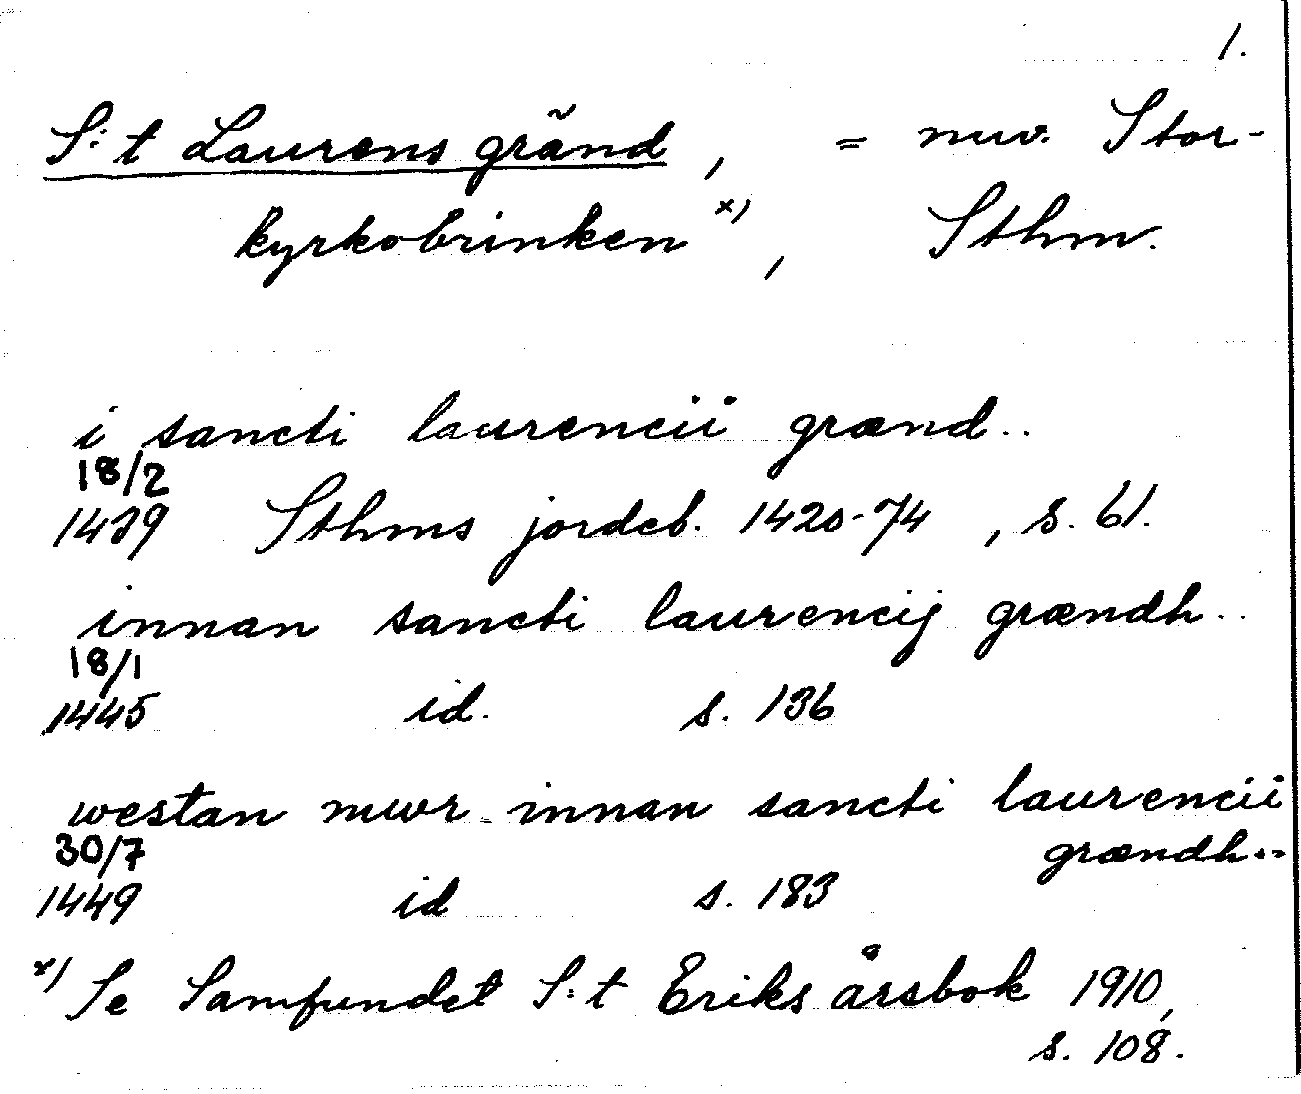 1.
S:t Laurens gränd, = nuv. Stor-
kyrkobrinken x), Sthm.
i sancti laurencii grænd..
18/2
1439 Sthms jordeb. 1420-74, s. 61.
innan sancti laurencij grændh..
18/1
1445 id. s. 136
westan mwr innan sancti laurencii
grændh..
30/7
1449 id s. 183
x) Se Samfundet S:t Eriks årsbok 1910,
s. 108.